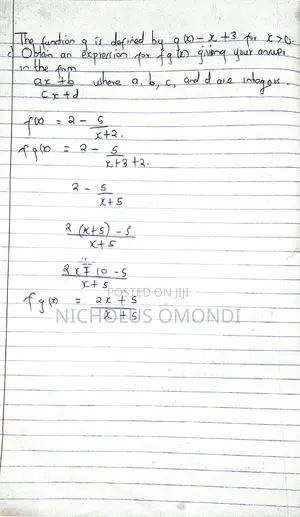 The function g is defined by g(x) = x + 3 for x > 0
c) Obtain an expression for fg(x) giving your answer
in the form
ax + b where a, b, c, and d are integers.
cx + d
f(x) = 2 - 5
x + 2.
fg(x) = 2 - 5
x + 3 + 2.
2 - 5
x + 5
2 (x + 5) - 5
x + 5
2x + 10 - 5
x + 5
POSTED ON JIJI
fg(x) = 2x + 5
x + 5
NICHOLUS OMONDI